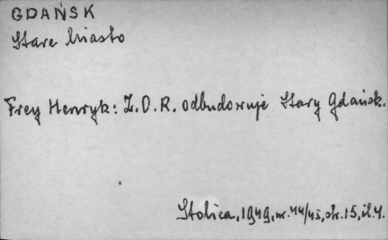 GDAŃSK
Stare Miasto
Frey Henryk: Z.O.R. odbudowuje Stary Gdańsk.
Stolica, 1949, nr. 44/45, str. 15, il. 4.